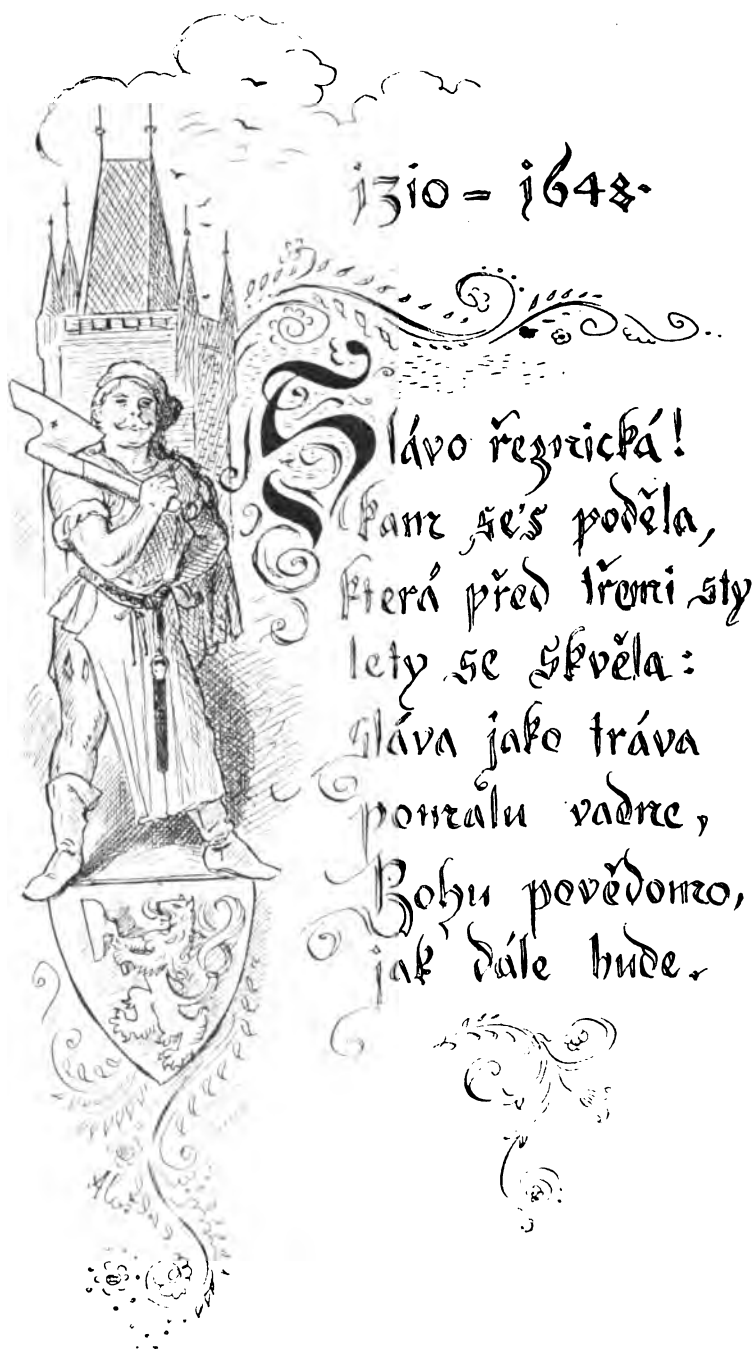 1310 = 1648.
Slávo řeznická!
kam se's poděla,
která před třemi sty
lety se skvěla:
sláva jako tráva
pomálu vadne,
Bohu povědomo,
jak dále bude.